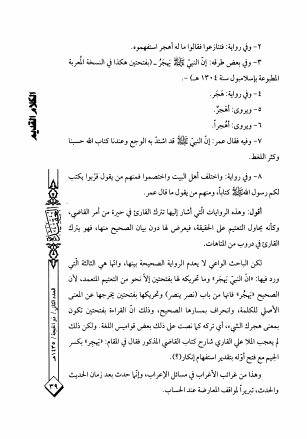 ٢- وفي رواية: فتنازعوا فقالوا ما له أهجر استفهموه.
٣- وفي بعض طرقه: إنّ النبيّ ﷺ يَهجَرُ ـ (بفتحتين هكذا في النسخة المُعربة
المطبوعة بإسلامبول سنة ١٣٠٤ هـ) ـ.
٤- وفي رواية: هَجَر.
٥- ويروى: أهْجرٌ.
٦- ويروى: أهُجراً.
٧- وفيه فقال عمر: إنّ النبيّ ﷺ قد اشتدّ به الوجع وعندنا كتاب الله حسبنا
وكثر اللغط.
٨- وفي رواية: واختلف أهل البيت واختصموا فمنهم من يقول قرّبوا يكتب
لكم رسول الله ﷺ كتاباً، ومنهم من يقول ما قال عمر.
أقول: وهذه الروايات الّتي أشار إليها تترك القارئ في حيرة من أمر القاضي،
وكأنه يحاول التعتيم على الحقيقة، فيعرض لها دون بيان الصحيح منها، فهو يترك
القارئ في دروب من المتاهات.
لكن الباحث الواعي لا يعدم الرواية الصحيحة بينها، وانّما هي الثالثة الّتي
ورد فيها: «انّ النبيّ يَهجَر» وما تحريكه لها بفتحتين إلاّ نحو من التعتيم المتعمد، لأن
الصحيح «يَهجُر» فانها من باب (نصر ينصر) وتحريكها بفتحتين يخرجها عن المعنى
الأصلي للكلمة، وتنحرف بمسارها الصحيح، وذلك انّ القراءة بفتحتين تكون
بمعنى هجرك الشيء، أي تركه كما نصت على ذلك بعض قواميس اللغة. ولكن ذلك
لم يعجب الملا علي القاري شارح كتاب القاضي المذكور فقال في المقام: «يَهجِر» بكسر
الجيم مع فتح أوّله بتقدير استفهام إنكار(؟).
وهذا من غرائب الأعراب في مسائل الإعراب، وإنّما حدث بعد زمان الحديث
والحدث، تبريراً لمواقف المعارضة عند الحساب.
الكلام القديم
العدد الثاني / ذو الحجة / ١٤٣٥هـ
٣٩